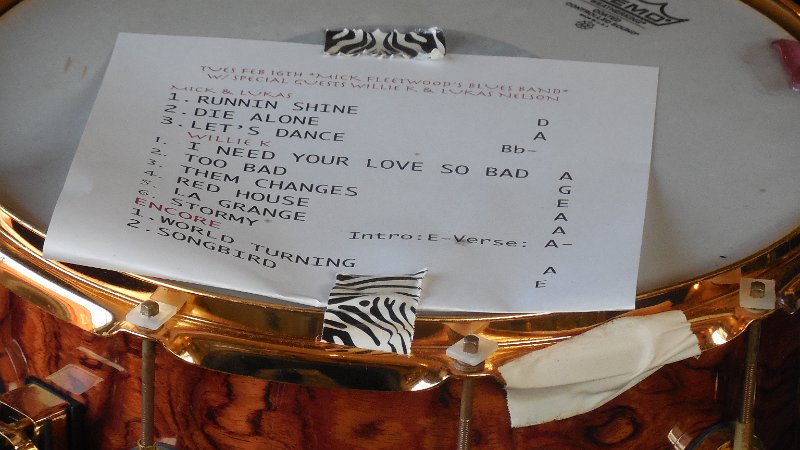 REMO
TUES FEB 16TH "MICK FLEETWOOD'S BLUES BAND"
W/ SPECIAL GUESTS WILLIE K & LUKAS NELSON
MICK & LUKAS
1. RUNNIN SHINE D
2. DIE ALONE A
3. LET'S DANCE Bb-
WILLIE K
1. I NEED YOUR LOVE SO BAD A
2. TOO BAD G
3. THEM CHANGES E
4. RED HOUSE A
5. LA GRANGE A
6. STORMY Intro:E-Verse: A-
ENCORE
1. WORLD TURNING A
2. SONGBIRD E